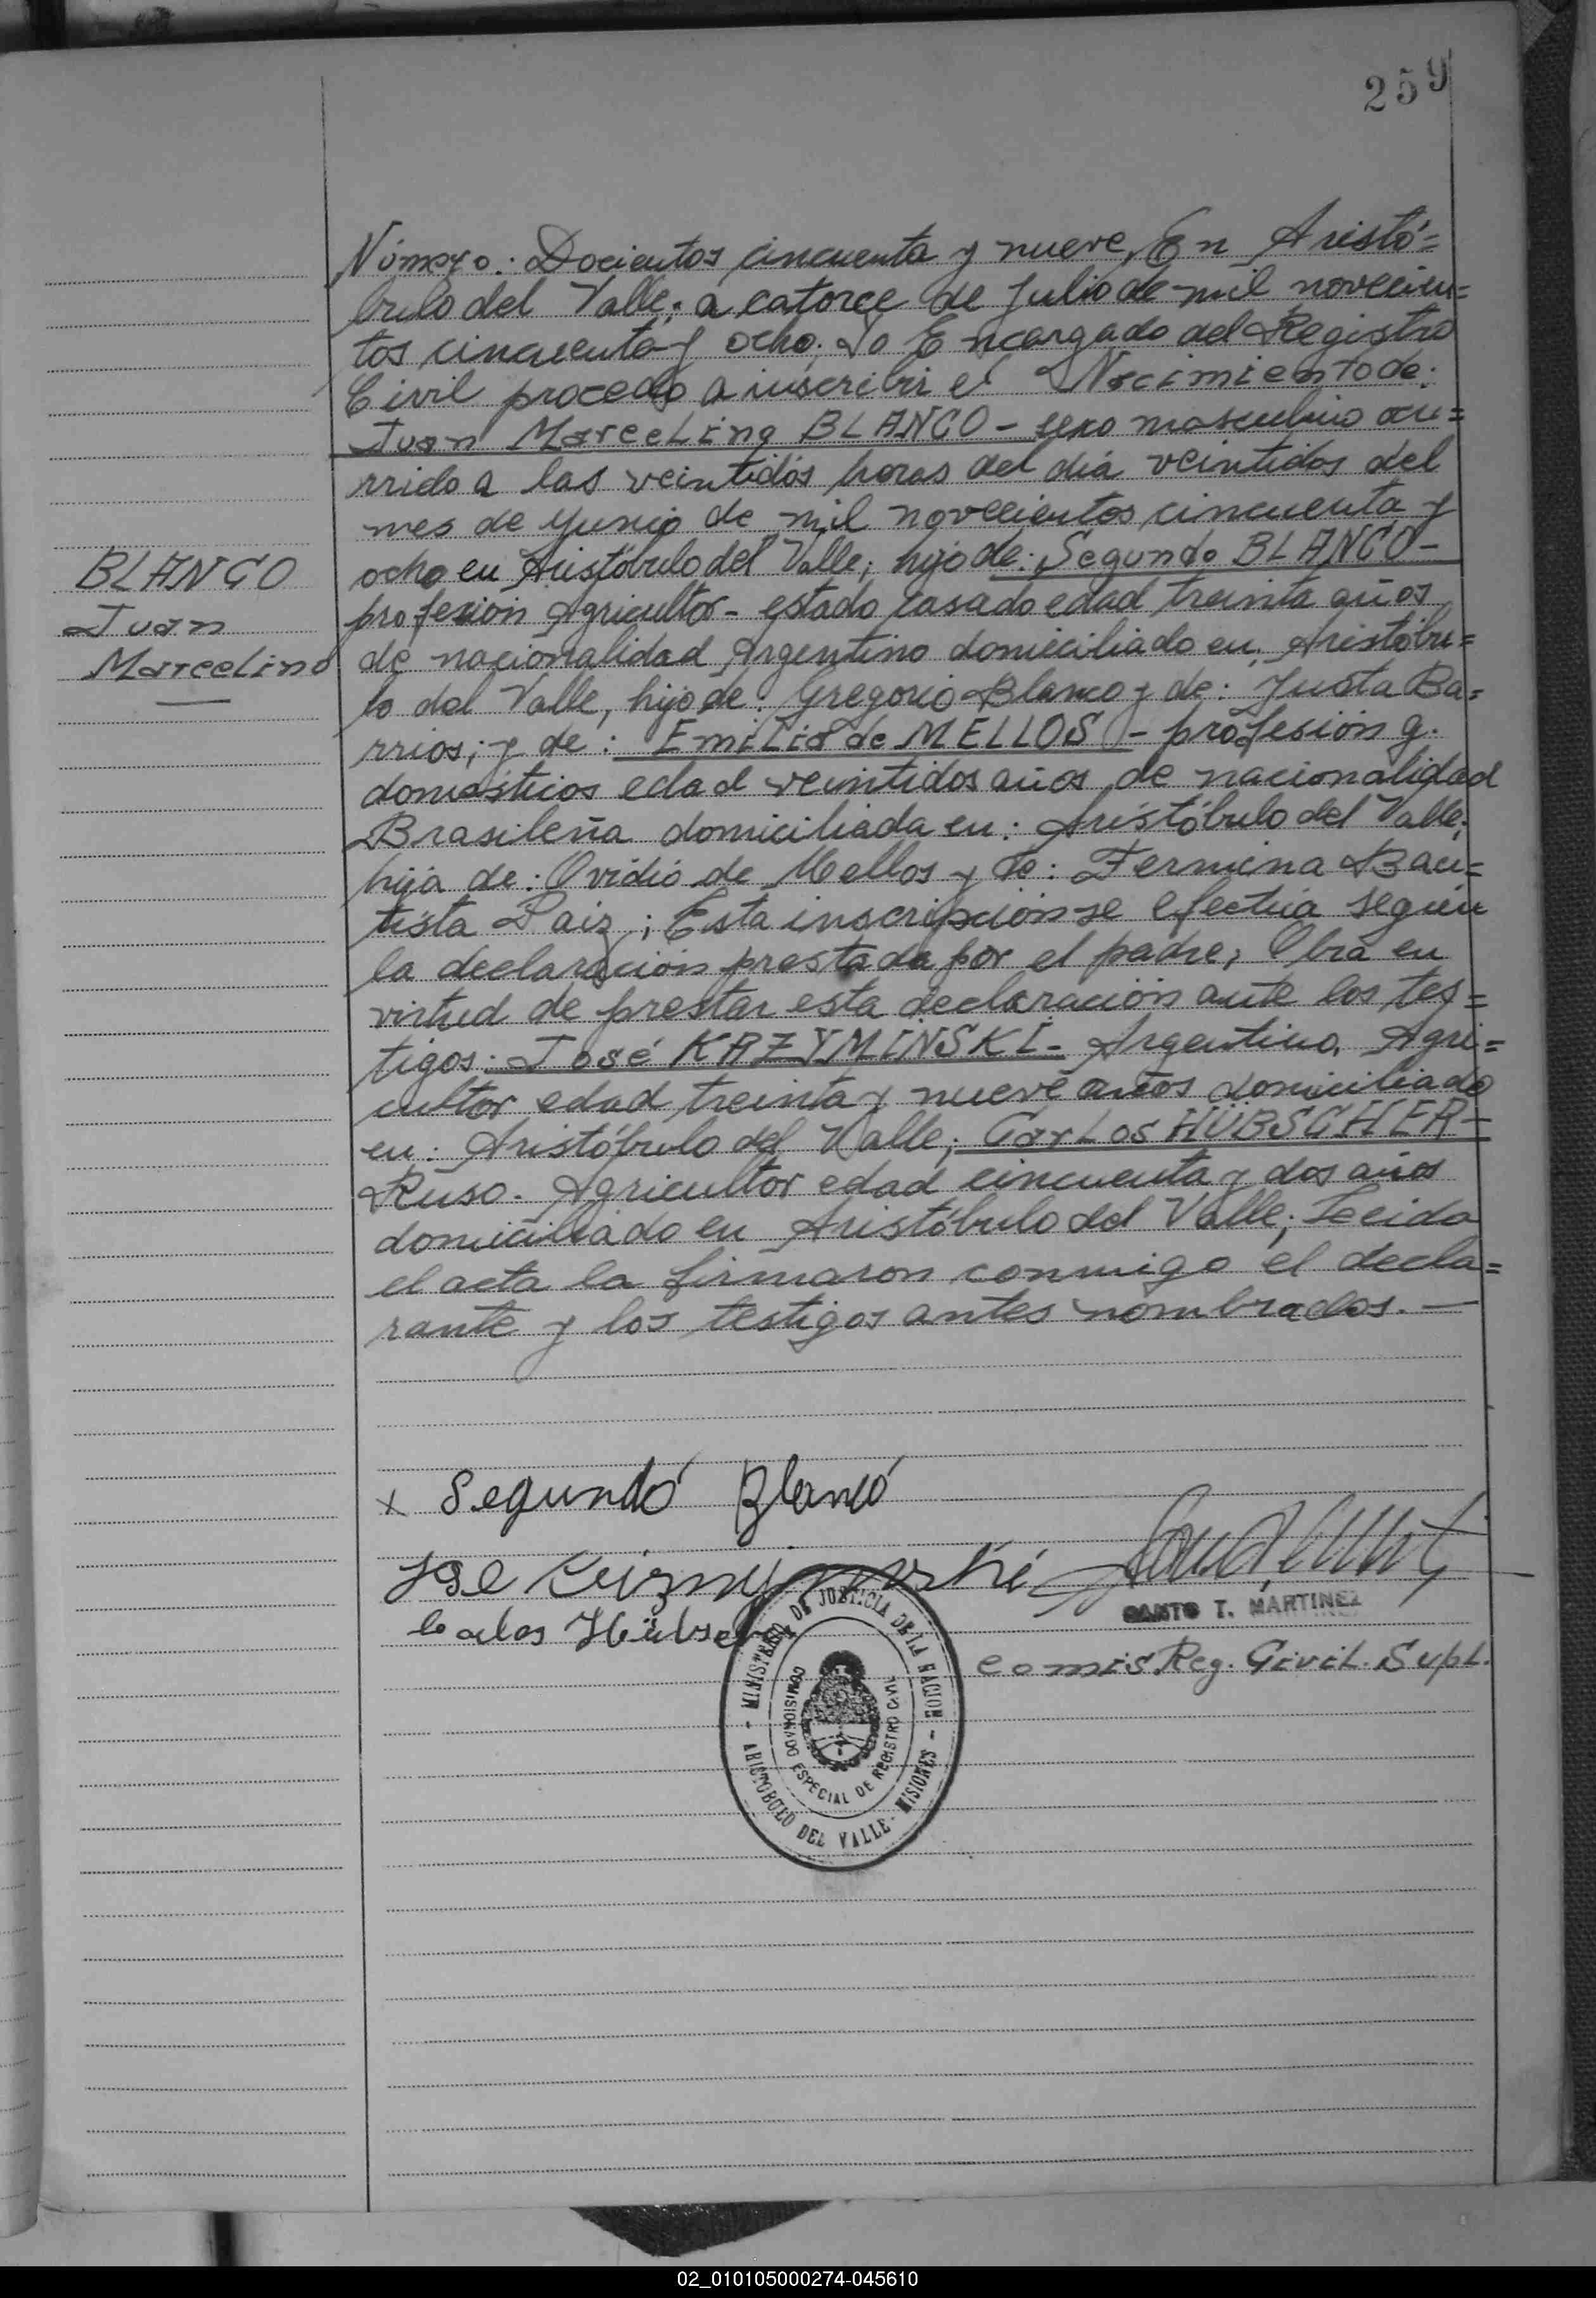 259
Número: Docientos cincuenta y nueve, En Aristó=
bulo del Valle; a catorce de Julio de mil novecien=
tos cincuenta y ocho; Yo Encargado del Registro
Civil procedo a inscribir el Nacimiento de:
Juan Marcelino BLANCO - sexo masculino ocu=
rrido a las veintidós horas del día veintidos del
mes de Junio de mil novecientos cincuenta y
ocho en Aristóbulo del Valle; hijo de: Segundo BLANCO -
BLANCO
profesión Agricultor - estado casado edad treinta años
Juan
de nacionalidad Argentino domiciliado en: Aristóbu=
Marcelino
lo del Valle, hijo de: Gregorio Blanco y de: Justa Ba=
rrios; y de: Emilia de MELLOS - profesión q.
domésticos edad veintidos años de nacionalidad
Brasileña domiciliada en: Aristóbulo del Valle;
hija de: Ovidio de Mellos y de: Fermina Bau=
tista Paiz; Esta inscripción se efectúa según
la declaración prestada por el padre; Obra en
virtud de prestar esta declaración ante los tes=
tigos: José KAZYMINSKI - Argentino. Agri=
cultor edad treinta y nueve años domiciliado
en: Aristóbulo del Valle; Carlos HÜBSCHER -
Ruso. Agricultor edad cincuenta y dos años
domiciliado en Aristóbulo del Valle; Leida
el acta la firmaron conmigo el decla=
rante y los testigos antes nombrados. —
x Segundo Blanco
Carlos
SANTO T. MARTINEZ
Comis Reg. Civil. Supl.
- MINISTERIO DE JUSTICIA DE LA NACION -
COMISIONADO ESPECIAL DE REGISTRO CIVIL
ARISTOBULO DEL VALLE - MISIONES
02_010105000274-045610